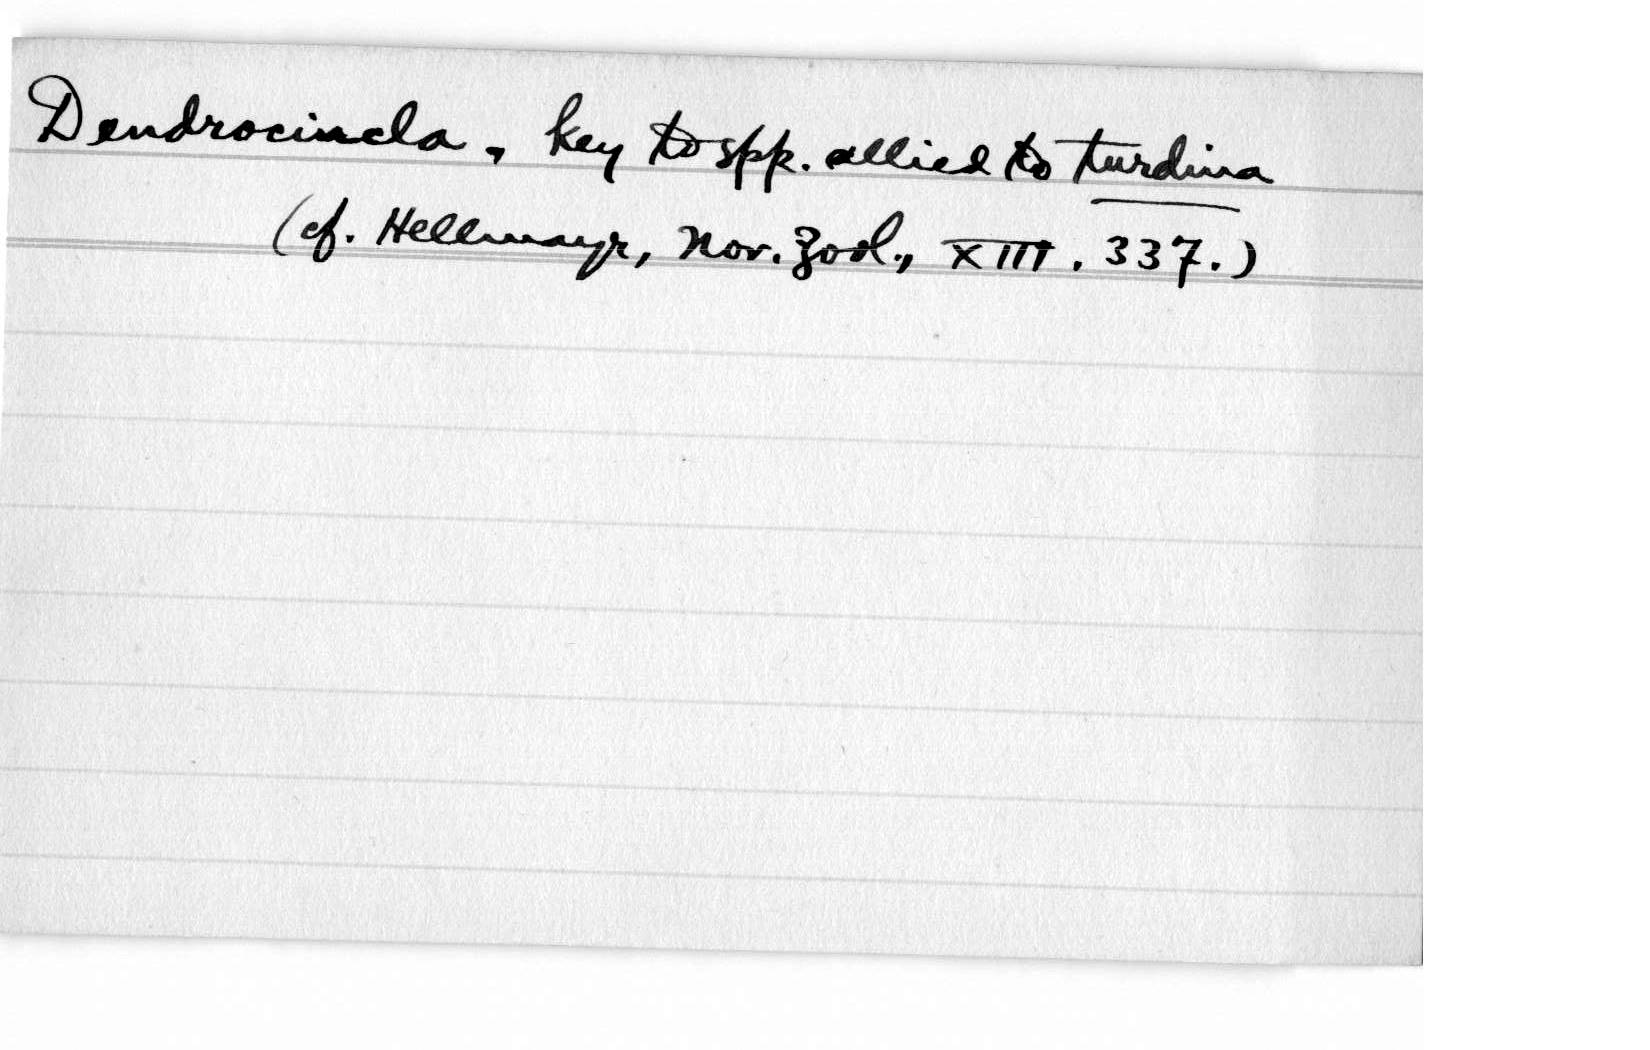 Dendrocincla, key to spp. allied to turdina
(cf. Hellmayr, Nov. Zool., XIII. 337.)